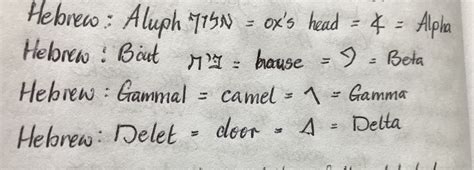 Hebrew : Aluph אלוף = ox's head = ∢ = Alpha
Hebrew : Bait בית = hause = 𐤂 = Beta
Hebrew : Gammal = camel = ᄉ = Gamma
Hebrew : Delet = door = Δ = Delta